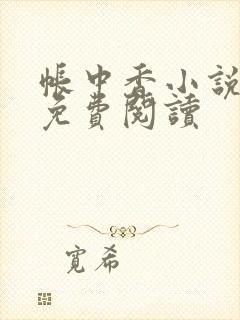 帳中香小說
免費閱讀
寬希